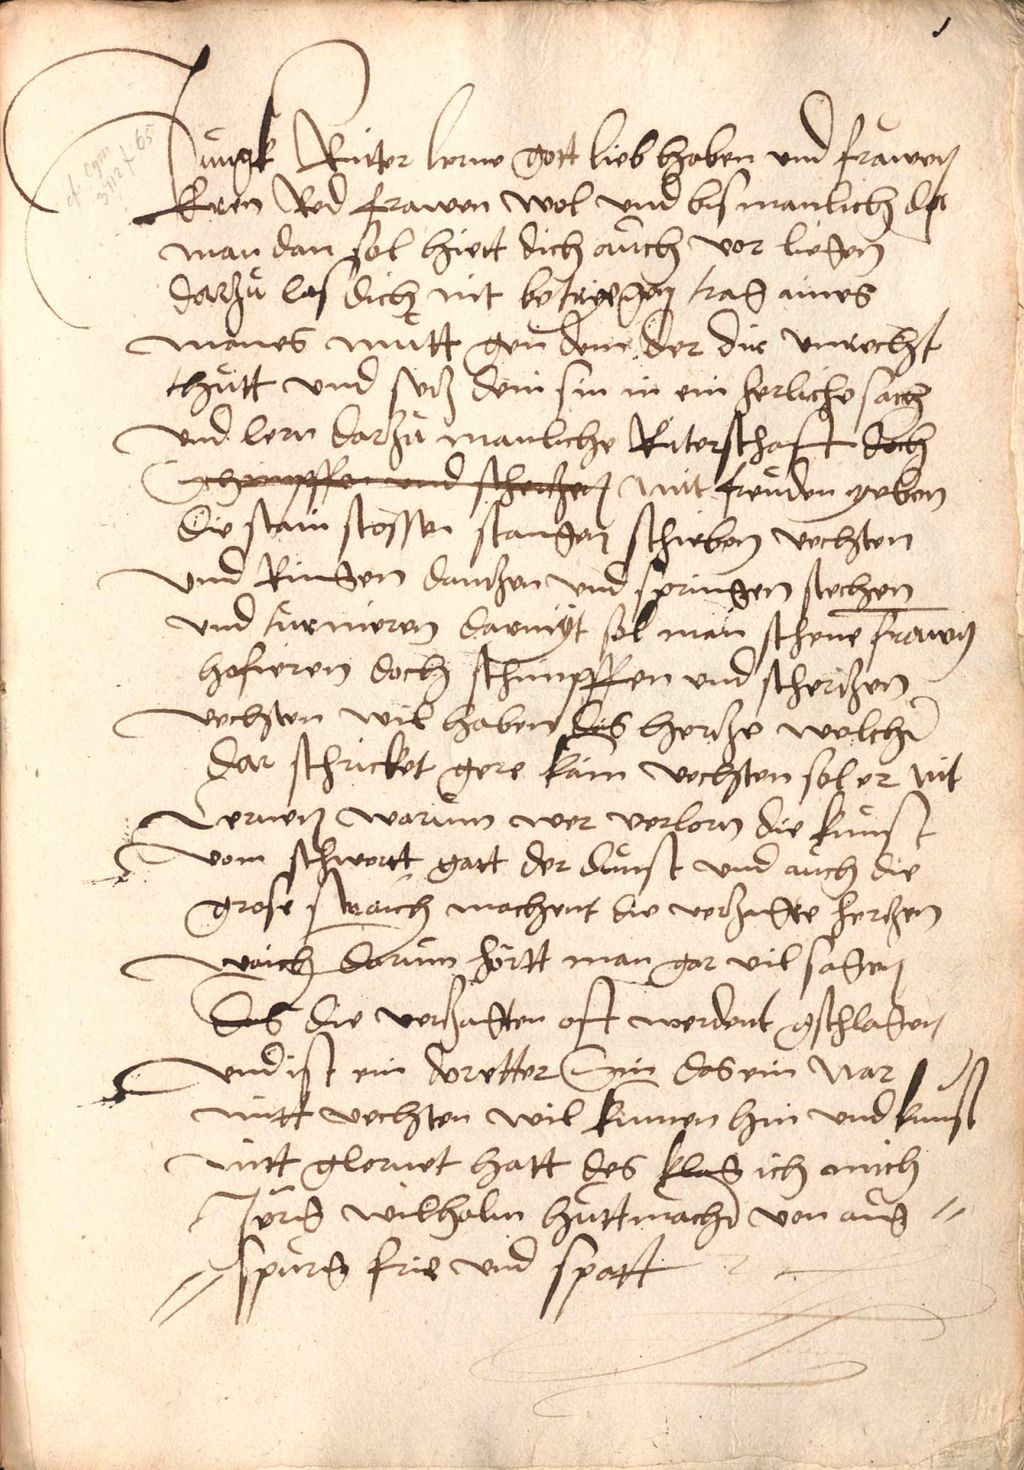 Jungk Ritter lerne gott lieb haben und frawen
Eren Red frawen wol und bis manlich da
man dan sol hiett dich auch vor liegen
darzu las dich nit betriegen trag aines
manes mutt gen dem der dir unrecht
thutt und setz dein sin in ein herliche sach
und lern darzu manliche Riterschaft doch
Schimpffen und schertzen mit freuden geben
die stain stossen stangen schieben vechten
und Ringen dantzen und springen stechen
und turnieren darmyt sol man schene frawen
hofieren doch schimpffen und schertzen
vechten wil haben des hertze welcher
dar schricket gere kain vechten sol er nit
lernen warum wer verlorn die kunst
vom schwertt gatt der dunst und auch die
grose straich machent die verzagte hertzen
waich darum hörtt man gar vil sagen
das die verzagten oft werdent gschlagen
und ist ein doretter Sin das ein nar
mitt vechten wil kumen hin und kunst
nitt glernet hatt des klag ich mich
Jörg wilhalm huttmacher von aug //
// spurg frie und spatt